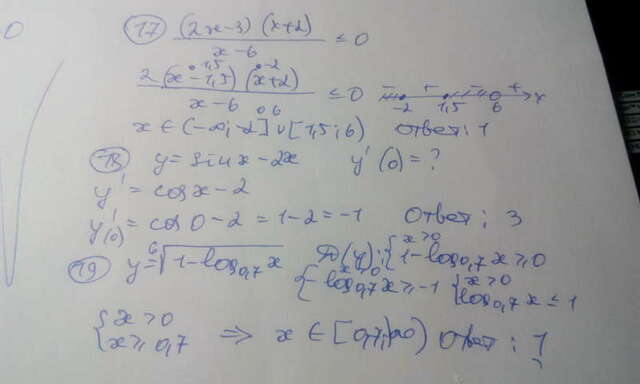 17 (2x-3)(x+2) / x-6 ≤ 0
2(x-1,5)(x+2) / x-6 ≤ 0
x ∈ (-∞; -2] ∪ [1,5; 6) ответ: 1
18 y = sin x - 2x y'(0) = ?
y' = cos x - 2
y'(0) = cos 0 - 2 = 1 - 2 = -1 Ответ: 3
19 y = ⁶√(1 - log₀,₇ x) D(y): { x > 0
1 - log₀,₇ x ≥ 0
{ x > 0
-log₀,₇ x ≥ -1 { x > 0
log₀,₇ x ≤ 1
{ x > 0
x ≥ 0,7 ⇒ x ∈ [0,7; ∞) Ответ: 1